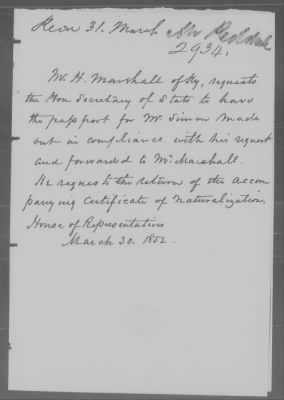 Recd 31. March Mr
2934.
Mr. H. Marshall of Ky, requests
the Hon Secretary of State to have
the passport for Mr. Simm made
out in compliance with his request
and forwarded to Mr Marshall.
He requests the return of the accom
panying Certificate of Naturalization.
House of Representatives
March 30. 1852.